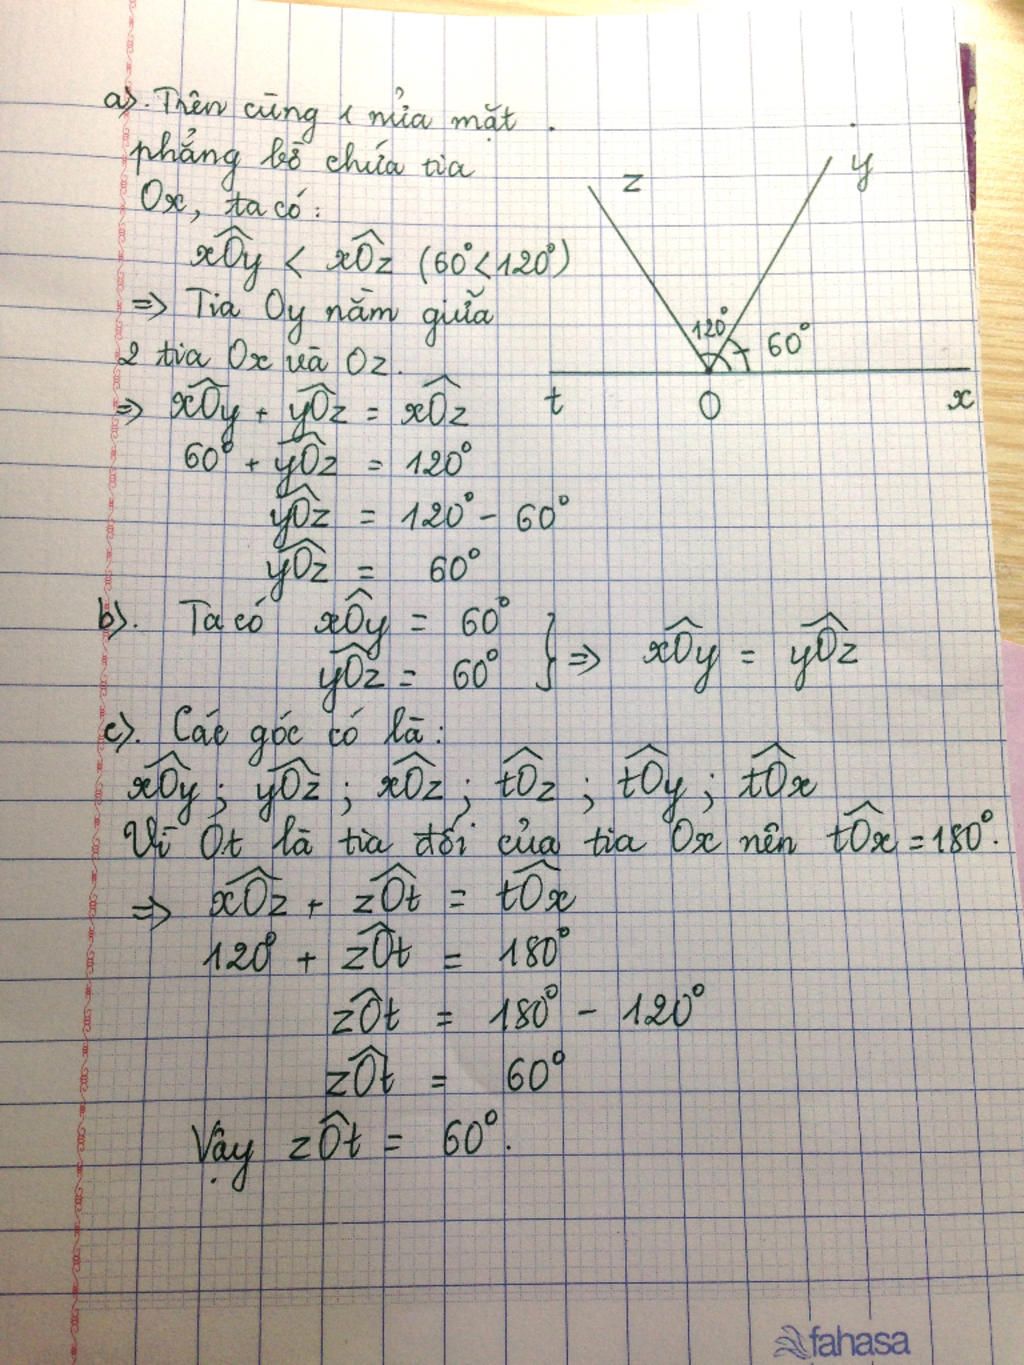 a). Trên cùng 1 nửa mặt
phẳng bờ chứa tia
Ox, ta có:
xÔy < xÔz (60° < 120°)
=> Tia Oy nằm giữa
2 tia Ox và Oz.
=> xÔy + yÔz = xÔz
60° + yÔz = 120°
yÔz = 120° - 60°
yÔz = 60°
z
y
120°
60°
t
O
x
b). Ta có xÔy = 60°
yÔz = 60°
} => xÔy = yÔz
c). Các góc có là:
xÔy ; yÔz ; xÔz ; tÔz ; tÔy ; tÔx
Vì Ot là tia đối của tia Ox nên tÔx = 180°.
=> xÔz + zÔt = tÔx
120° + zÔt = 180°
zÔt = 180° - 120°
zÔt = 60°
Vậy zÔt = 60°.
fahasa